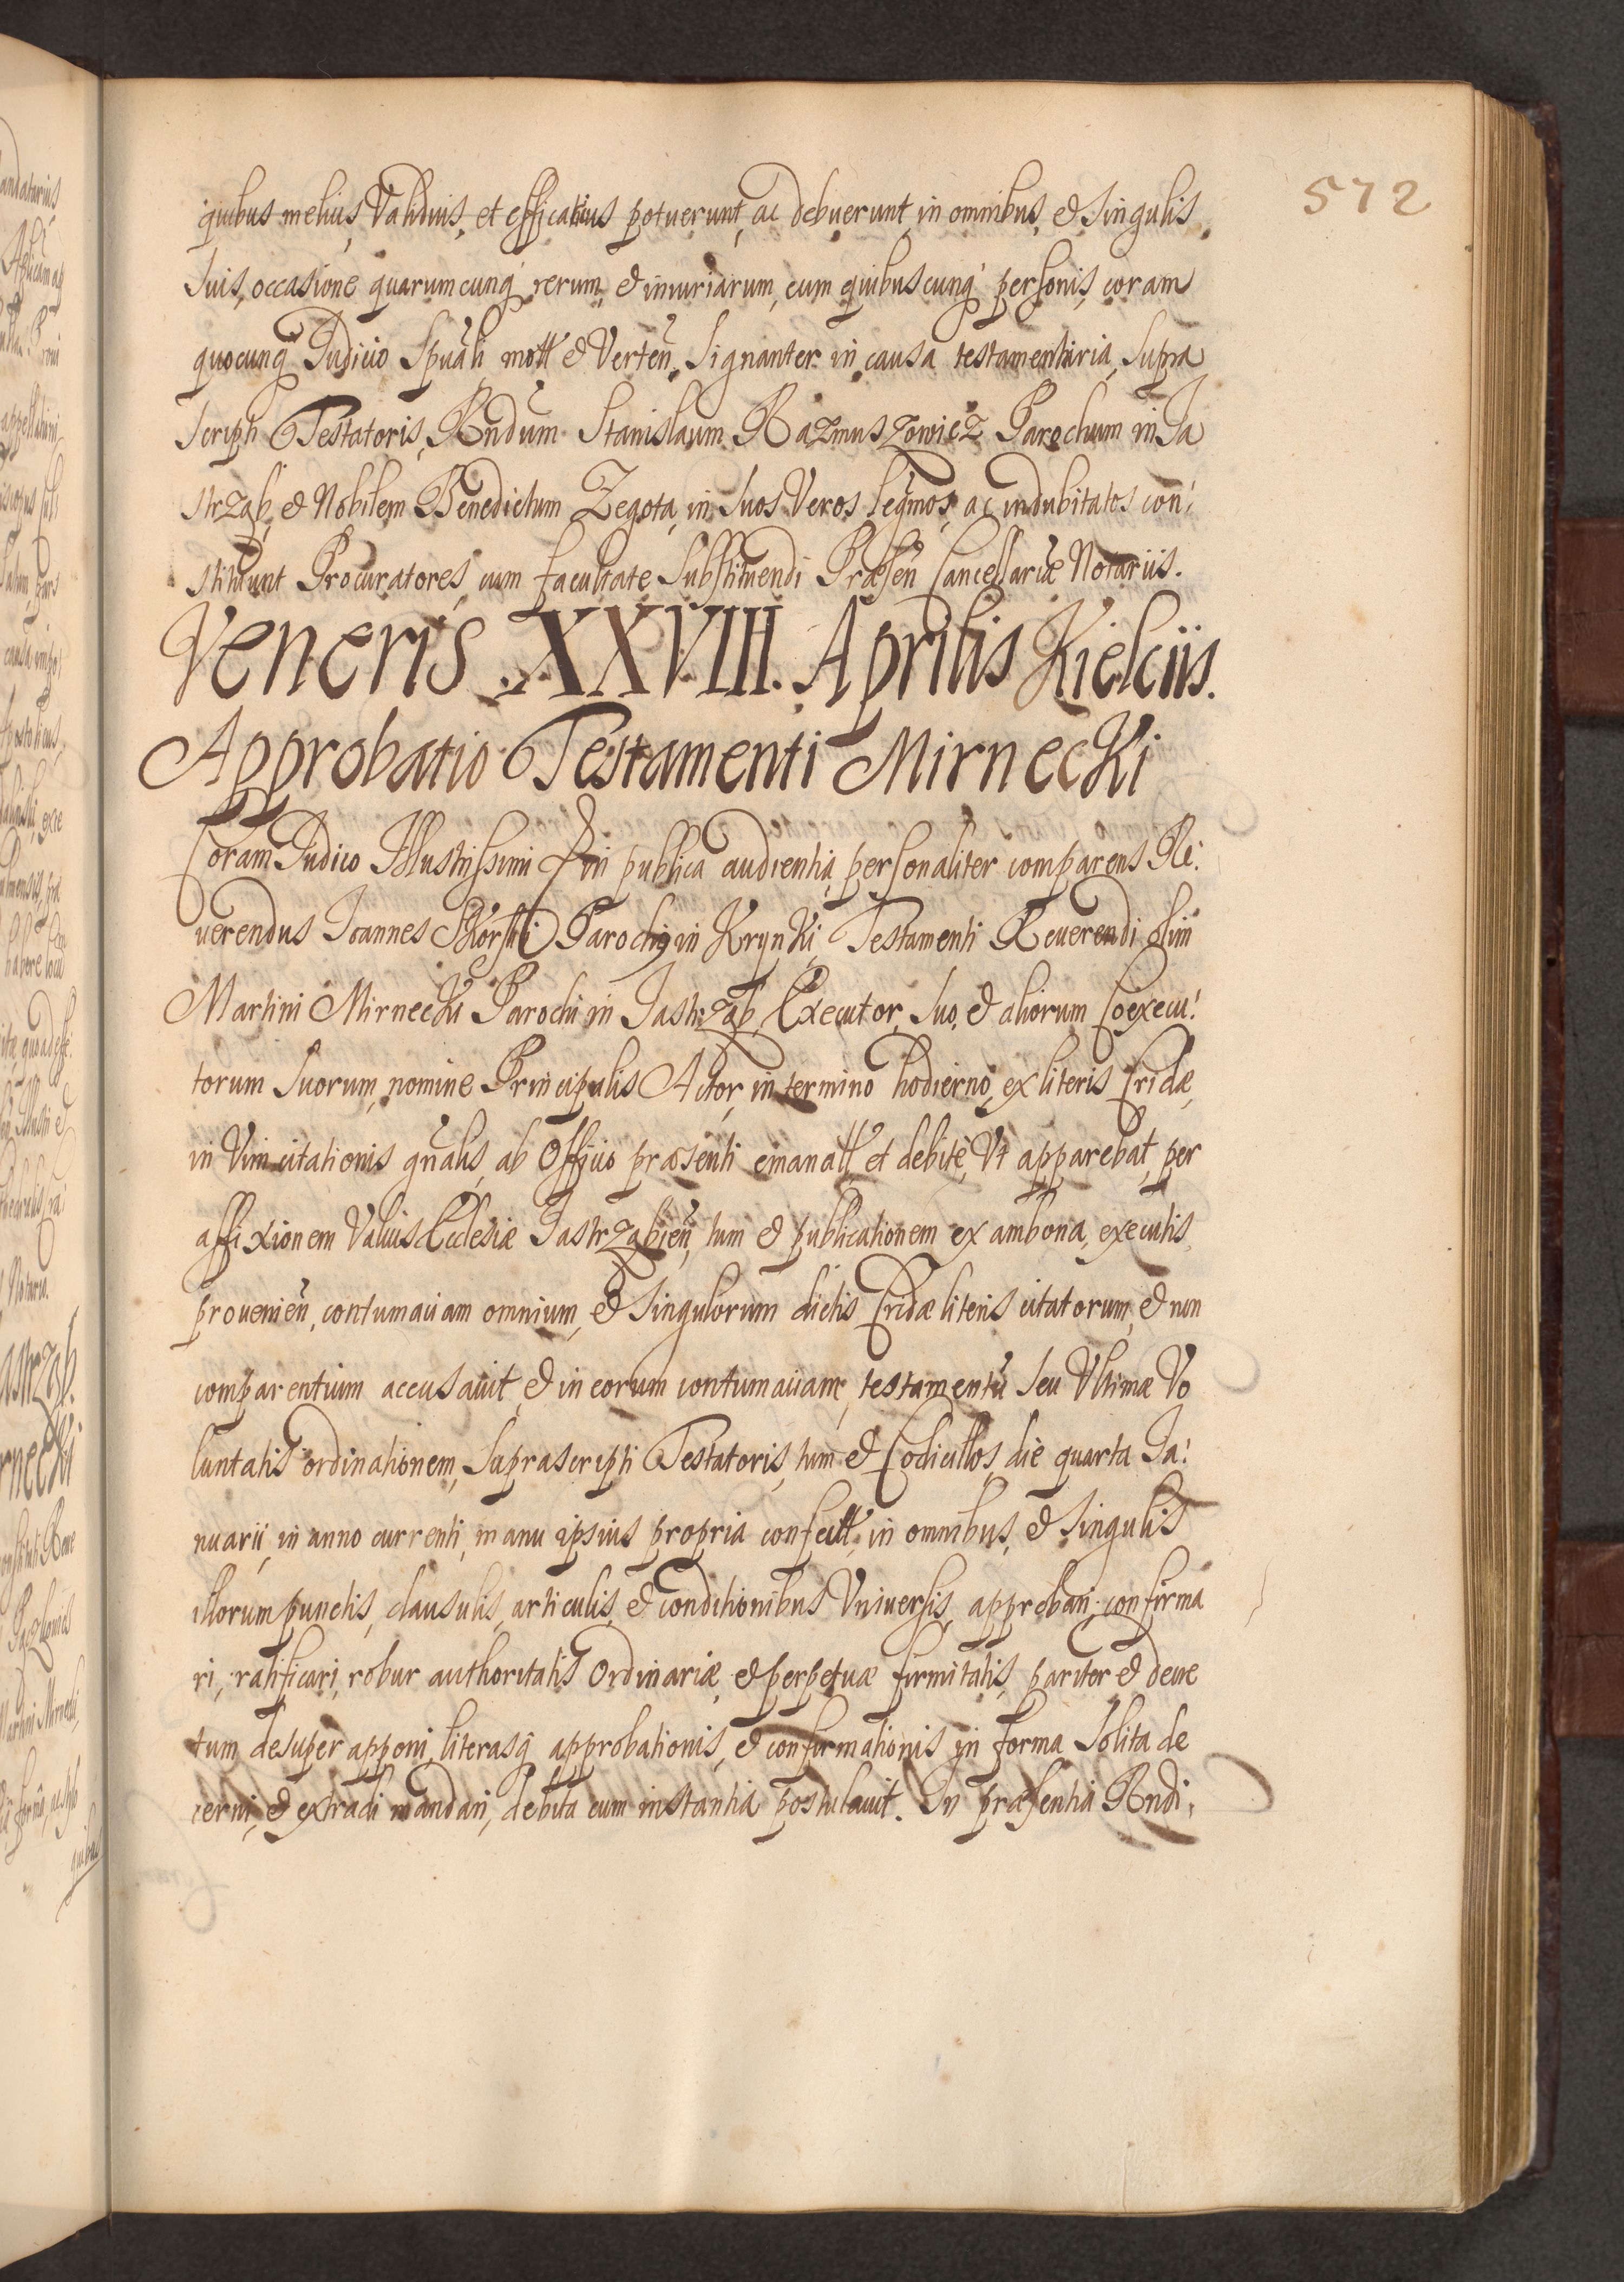 572
quibus melius, Validius, et efficatius potuerunt, ac debuerunt, in omnibus, & Singulis
Suis, occasione quarumcunq rerum, & iniuriarum, cum quibuscunq personis, coram
quocunq Judicio Spuali mott & Verten, Signanter in causa testamentaria, Supra
Scripti Testatoris, Rndum Stanislaum Razmuszowicz Parochum in Ja
strząb, & Nobilem Benedictum Zegota, in Suos Veros legmos, ac indubitatos con:
stituunt Procuratores, cum facultate Substituendi Præsen Cancellariæ Notariis.
Veneris XXVIII. Aprilis Kielciis.
Approbatio Testamenti Mirnecki
Coram Judicio Illustrissimi in publica audientia, personaliter comparens Re:
uerendus Joannes Skorski Parochus in Krynki, Testamenti Reuerendi olim
Martini Mirnecki Parochi in Jastrząb, Executor, Suo, & aliorum Coexecu:
torum Suorum, nomine Principalis Actor, in termino hodierno, ex literis Cridæ,
in Vim citationis gnalis, ab Officio præsenti emanatt, et debitè, Vt apparebat, per
affixionem Valuis Ecclesiæ Jastrząbien, tum & publicationem ex ambona, executis
prouenien, contumaciam omnium, & Singulorum dictis Cridæ literis citatorum, & non
comparentium accusauit, & in eorum contumaciam, testamentū Seu Vltimæ Vo
luntatis ordinationem, Suprascripti Testatoris, tum & Codicillos, die quarta Ja:
nuarii, in anno currenti, manu ipsius propria confectt, in omnibus, & Singulis
illorum punctis, clausulis, articulis, & conditionibus Vniuersis, approbari, confirma
ri, ratificari, robur authoritatis Ordinariæ, & perpetuæ firmitatis, pariter & decre
tum desuper apponi, literasq approbationis, & confirmationis in forma Solita de
cerni, & extradi mandari, debita cum instantia postulauit. In præsentia Rndi,